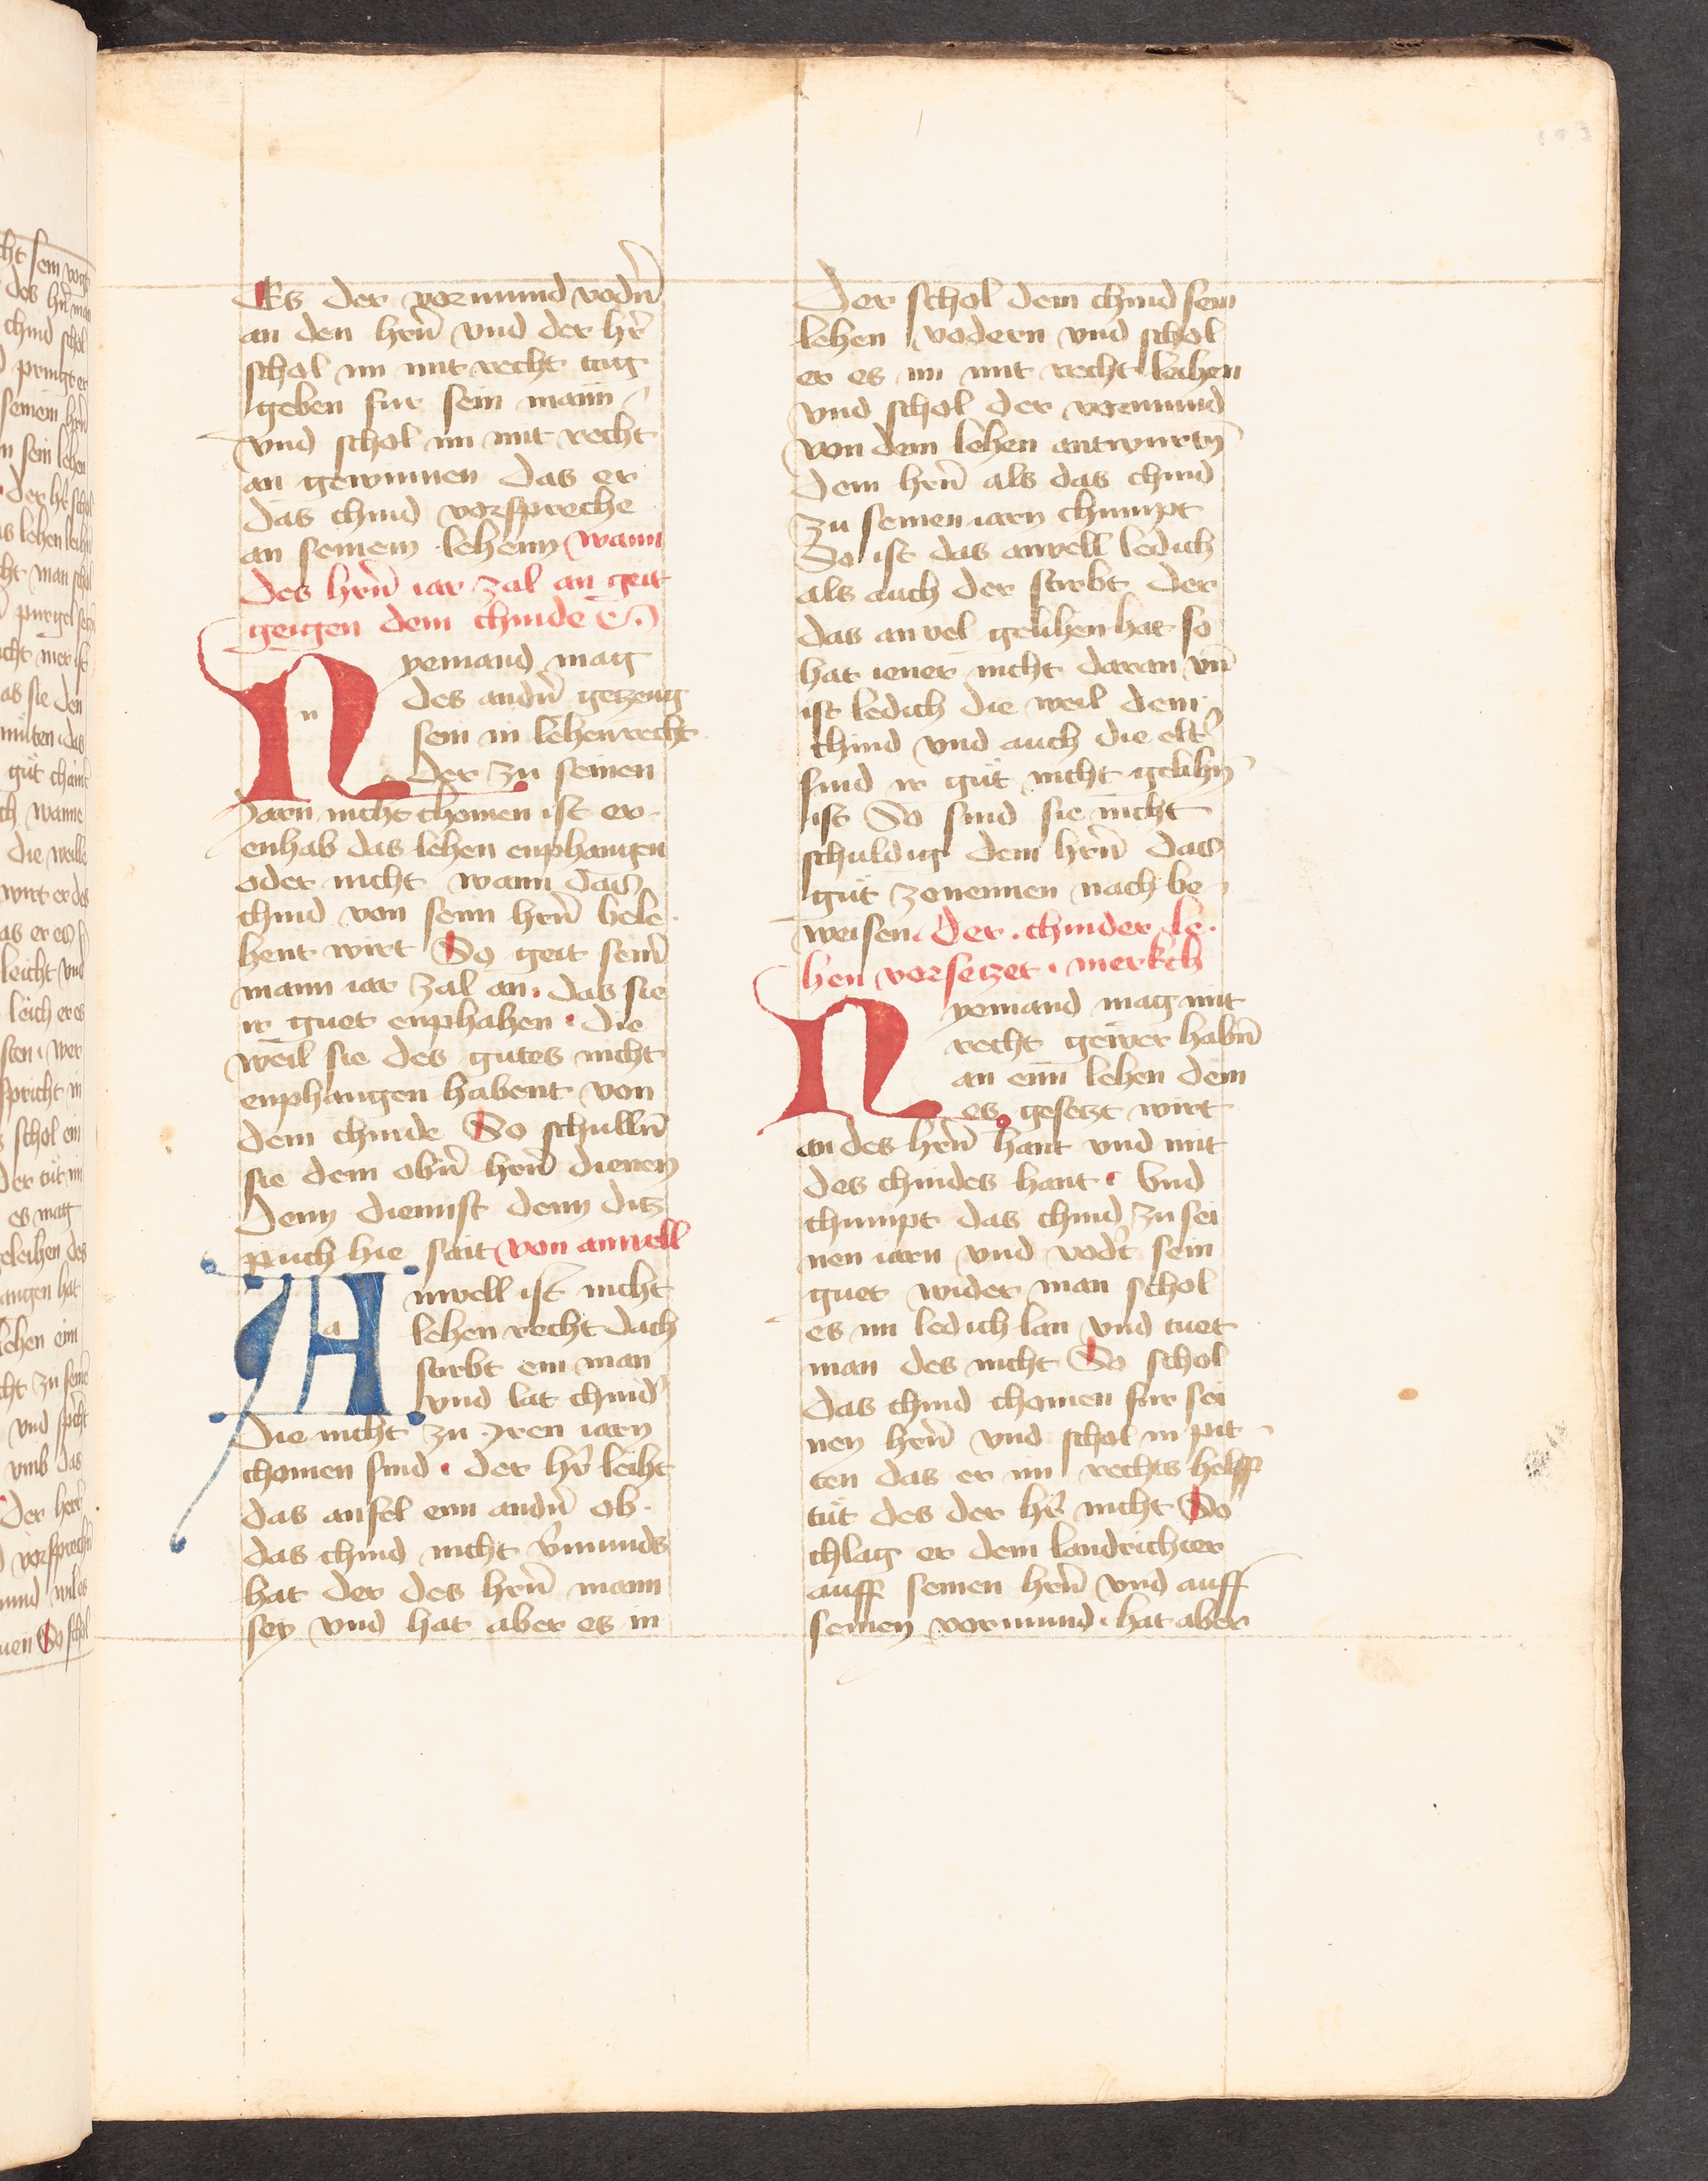 Es der vormund vodn̄
an den hrn̄ vnd der hr̄
schol im mit recht tag
geben fur sein mann
vnd schol im mit recht
an gewinnen das er
das chind vorspreche
an seinem lehenn wann
des hrn̄ iar zal an geit
geigen dem chinde
Nyemand mag
des andn̄ getzeug
sein in lehenrecht
der zu seinen
Jarn nicht chomen ist er
enhab das lehen enphangen
oder nicht wann das
chind von seim hrn̄ bele
hent wirt So geit sein̄
mann iar zal an. das sie
ir guet enphahen. die
weil sie des gutes nicht
enphangen habent von
dem chinde So schulln̄
sie dem obn̄ hrn̄ dienen
denn diennst denn ditz
puch hie sait von anvell
Anvell ist nicht
lehen recht dach
stirbt ein man
vnd lat chind̄
die nicht zu yren iarn
chomen sind. der hr̄ leiht
das anfel eim andn̄ ob
das chind nicht v̄munds
hat der des hrn̄ mann
sey vnd hat aber es in
der schol dem chind sein
lehen vodern vnd schol
er es im mit recht leihen
vnd schol der vormund
von dem lehen antwurtn̄
dem hrn̄ als das chind
zu seinen iarn chumpt
So ist das anvell ledich
als auch der stirbt der
das anvel gelihen hat so
hat iener nicht daran vn̄
ist ledich die weil dem
chind vnd auch die elt̄
sind ir gut nicht gelihn̄
ist So sind sie nicht
schuldig dem hrn̄ das
gut zenennen nach be
weisen. der. chinder le.
hen vorsetzet. merkch
Nyemand mag mit
recht gewer habn̄
an eim lehen dem
es gesetzt wirt
an des hrn̄ hant vnd mit
des chindes hant. Vnd
chumpt das chind zu sei
nen iarn vnd vodt̄ sein
guet wider man schol
es im ledich lan vnd tuet
man des nicht So schol
das chind chomen fur sei
nen hrn̄ vnd schol in pit
ten das er im rechts helff
tut des der hr̄ nicht So
chlag er dem landrichter
auff seinen hrn̄ vnd auff
seinen vormund. hat aber